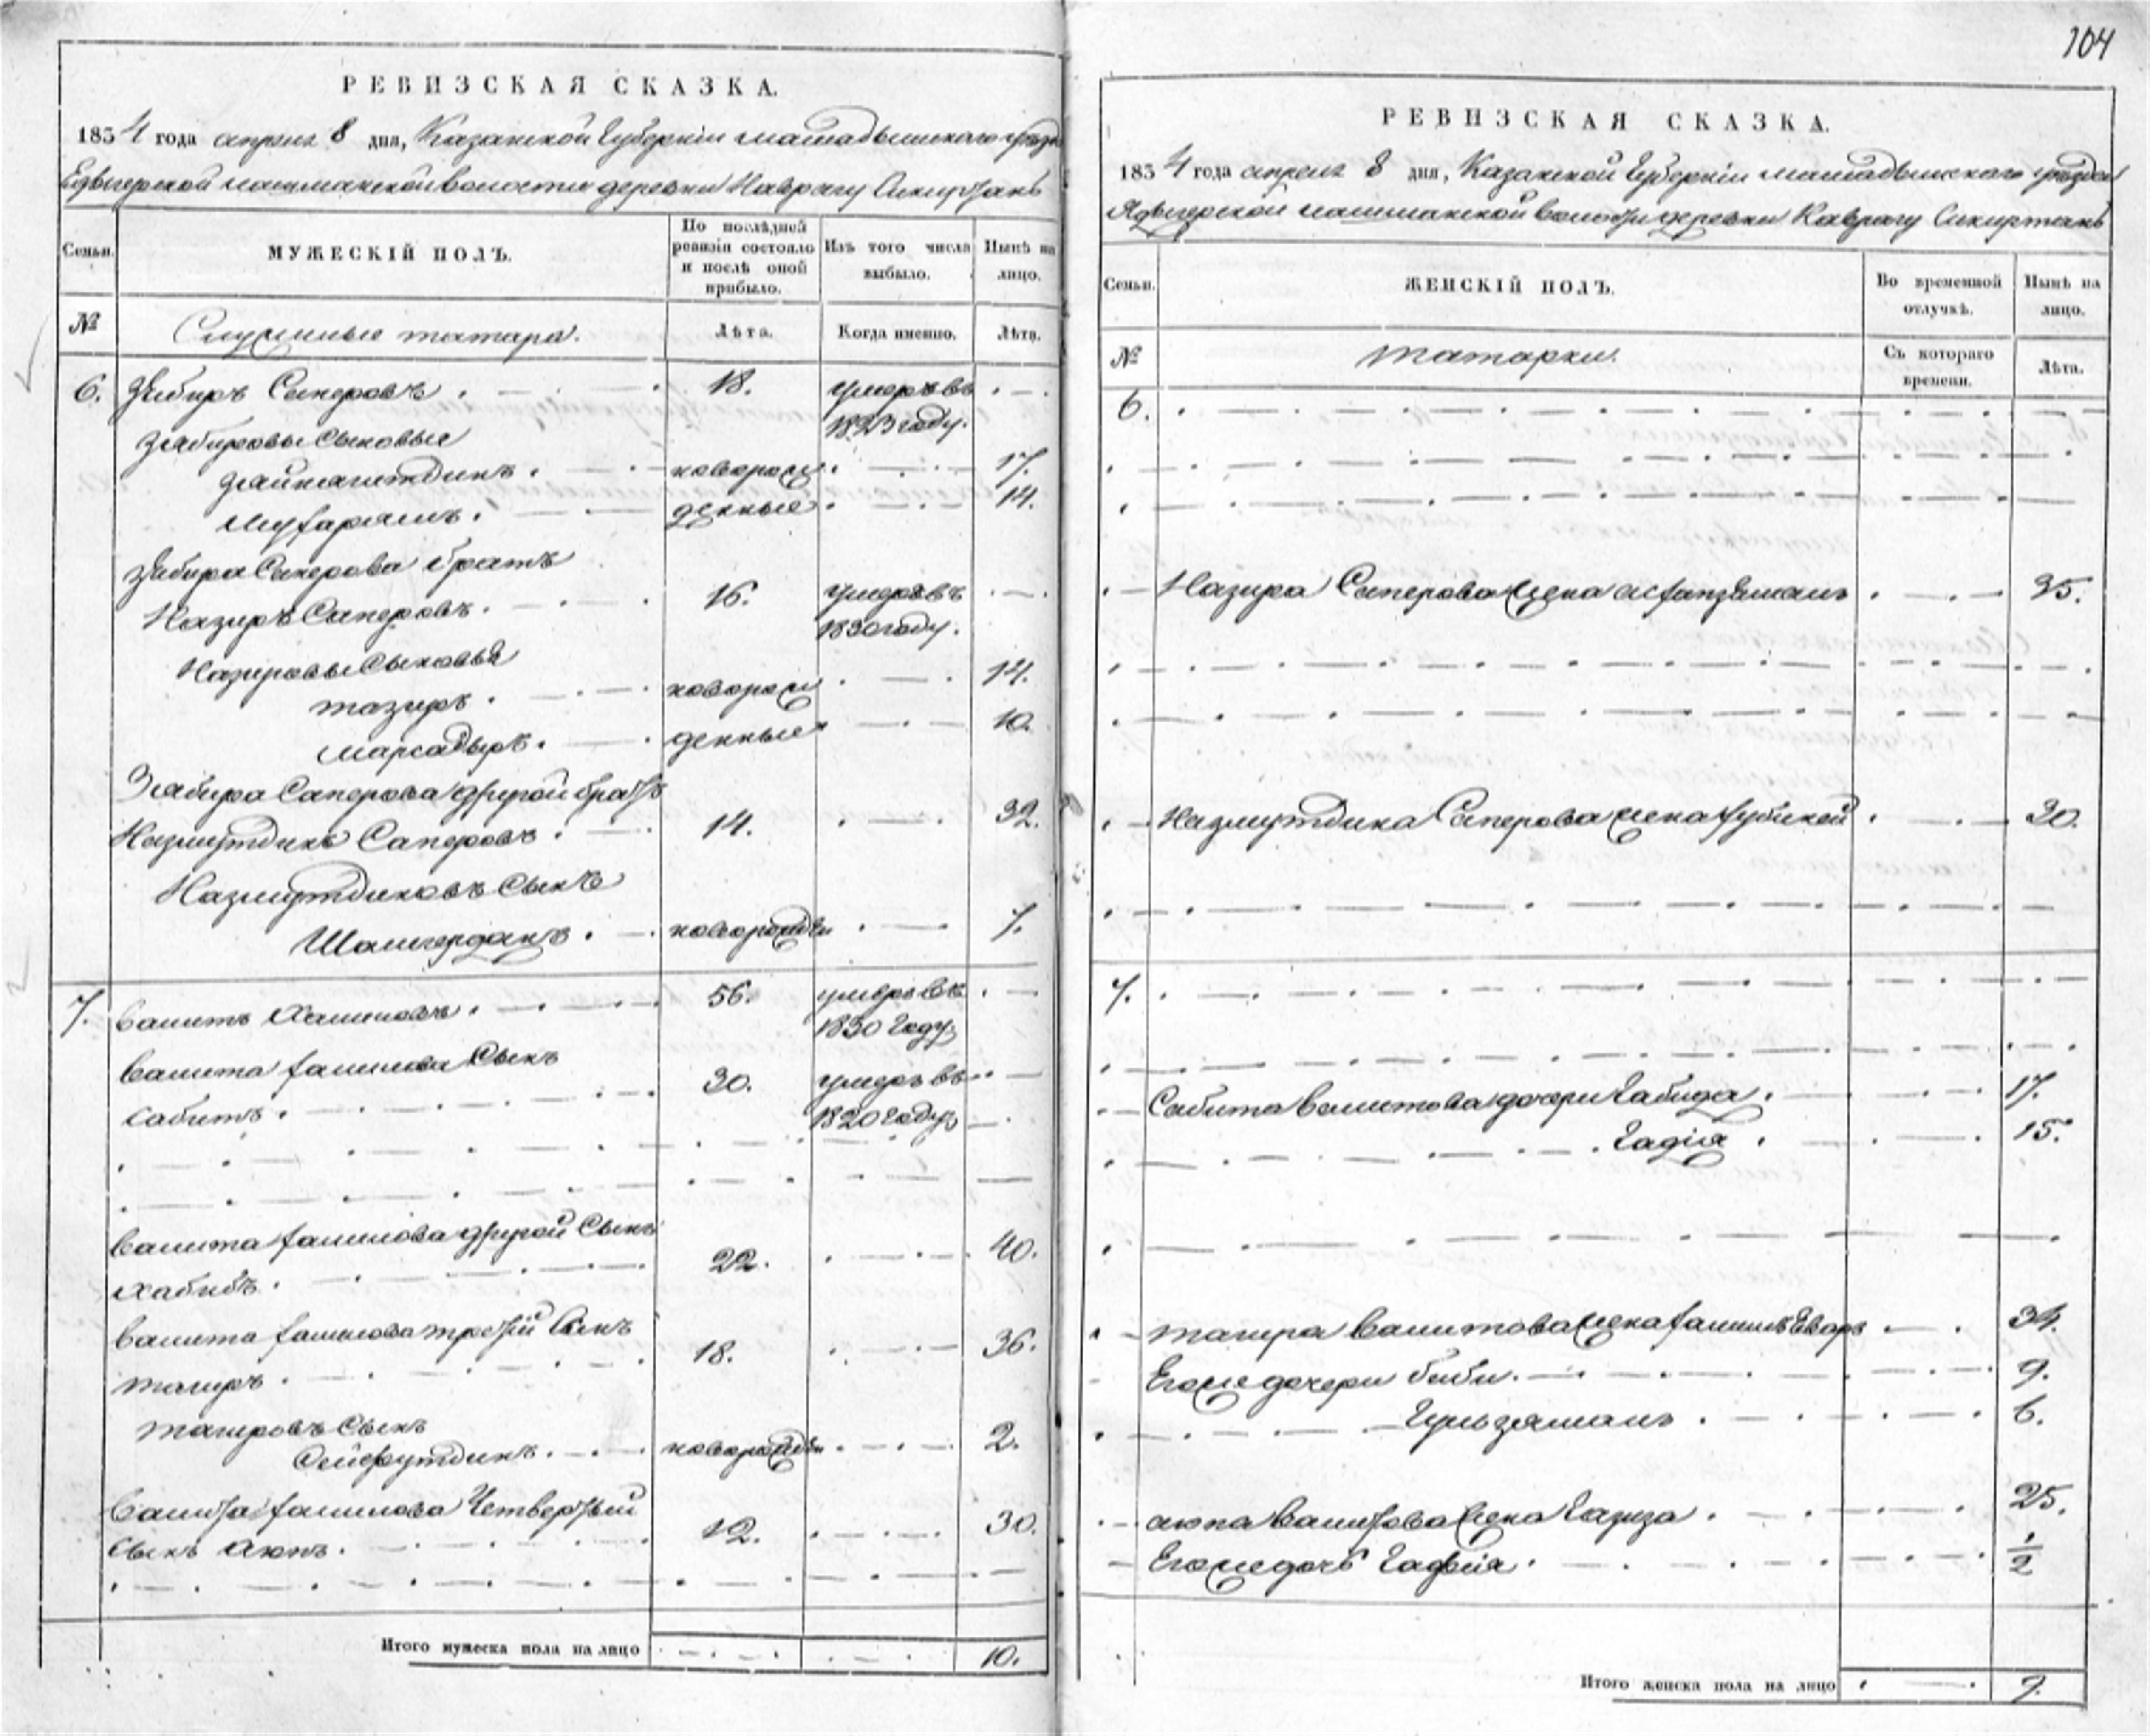 104
РЕВИЗСКАЯ СКАЗКА.
1834 года апреля 8 дня, Казанской Губернiи мамадышского уезда
Едыгерской волости деревни Наврагу Сикиртань
Семьи.
МУЖЕСКIЙ ПОЛЪ.
По послѣдней ревизiи состояло и послѣ оной прибыло.
Изъ того числа выбыло.
Нынѣ на лицо.
№
Служилые татара.
Лѣта.
Когда именно.
Лѣта.
6. Зябиръ Саперовъ 18. умеръ въ
1823 году.
Зябировы Сыновья
Зайнагитдинъ новорож 17.
денные 14.
Зябира Саперова братъ
Назиръ Саперовъ 16. умеръ въ
1830 году.
Назировы Сыновья
тазиръ новорож 14.
марсадыръ денные 10.
Зябира Саперова другой братъ
Назмутдинъ Саперовъ 14. 32.
Назмутдиновъ Сынъ
Шамгерданъ новорожден 7.
7. Вашитъ Халиловъ 56. умеръ въ
1830 Году
Вашита Сынъ
Сабитъ 30. умеръ въ
1820 Году
Вашита другой Сынъ
Хабибъ 22. 40.
Вашита третiй Сынъ
тагиръ 18. 36.
тагировъ Сынъ
Сейфутдинъ новорожден 2.
Вашита Четвертый
Сынъ Аюпъ 12. 30.
Итого мужеска пола на лицо 10.
РЕВИЗСКАЯ СКАЗКА.
1834 года апреля 8 дня, Казанской Губернiи мамадышского уезда
Ядыгерской волости деревни Наврагу Сикиртань
Семьи.
ЖЕНСКIЙ ПОЛЪ.
Во временной отлучкѣ.
Нынѣ на лицо.
№
татарки.
Съ котораго времени.
Лѣта.
6.
Назира Саперова жена 35.
Назмутдина Саперова жена 30.
7.
Сабита Вашитова дочери Габида 17.
Гадiя 15.
тагира Вашитова жена 34.
Его же дочери биби 9.
Гульзямалъ 6.
аюпа Вашитова жена Газиза 25.
Его же дочь Гафiя 1/2
Итого женска пола на лицо 9.